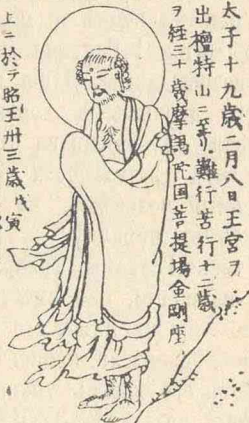 太子十九歳二月八日王宮ヲ
出檀特山ニ至リ難行苦行十二歳
ヲ経三十歳摩竭陀国菩提場金剛座
上ニ於テ昭王卅三歳戊寅